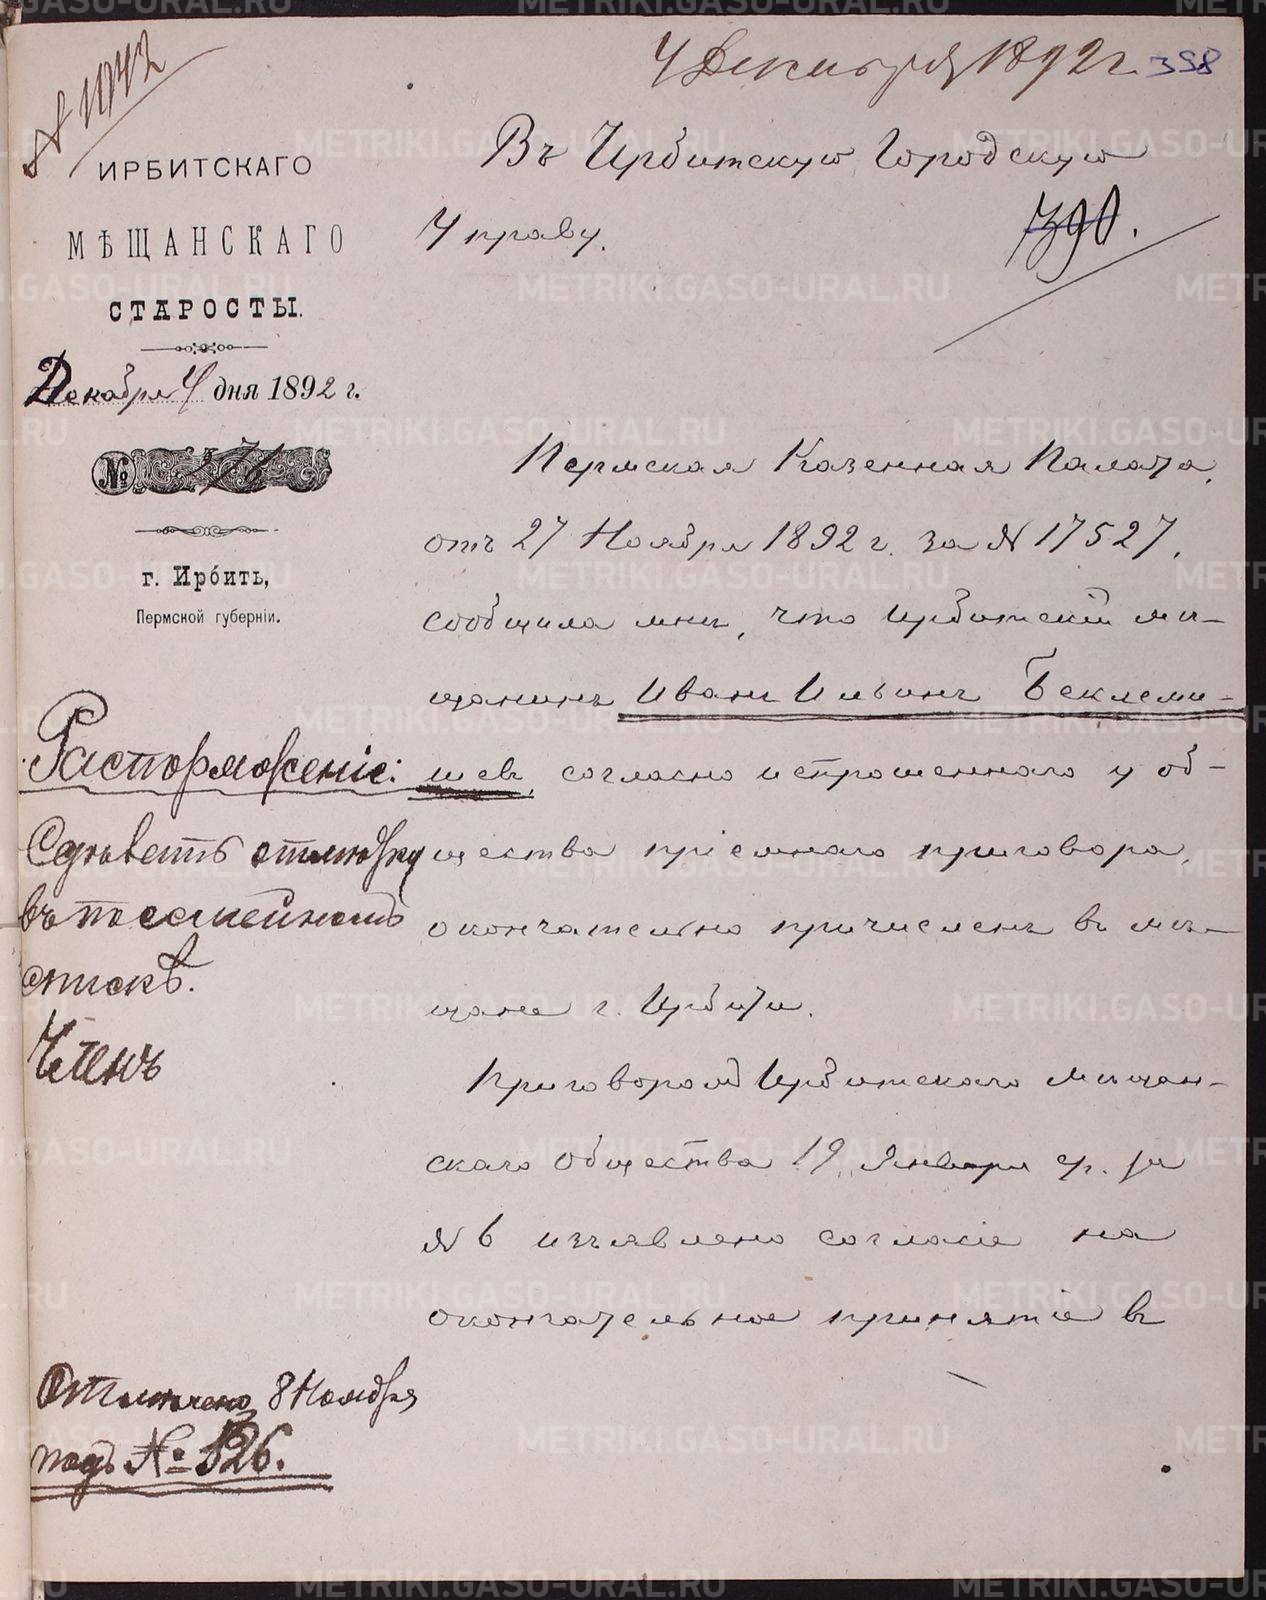 4 Декабря 1892 г. 398
№ 1142
ИРБИТСКАГО
МѢЩАНСКАГО
СТАРОСТЫ.
Декабря 4 дня 1892 г.
№ 471
г. Ирбить,
Пермской губерніи.
Въ Ирбитскую Городскую
Управу.
390.
Пермская Казенная Палата,
отъ 27 Ноября 1892 г. за № 17527,
сообщила мнѣ, что Ирбитскій мѣ-
щанинъ Иванъ Ильинъ Беклеми-
шевъ, согласно испрошеннаго у об-
щества пріемнаго приговора,
окончательно причисленъ въ мѣ-
щане г. Ирбити.
Приговоромъ Ирбитскаго Мѣщан-
скаго Общества 19 Января с/г. за
№ 6 изъявлено согласіе на
окончательное принятіе въ
Распоряженіе:
Сдѣлать отмѣтку
въ посемейномъ
спискѣ.
Членъ
Отмѣчено 8 Ноября
подъ № 526.
METRIKI.GASO-URAL.RU